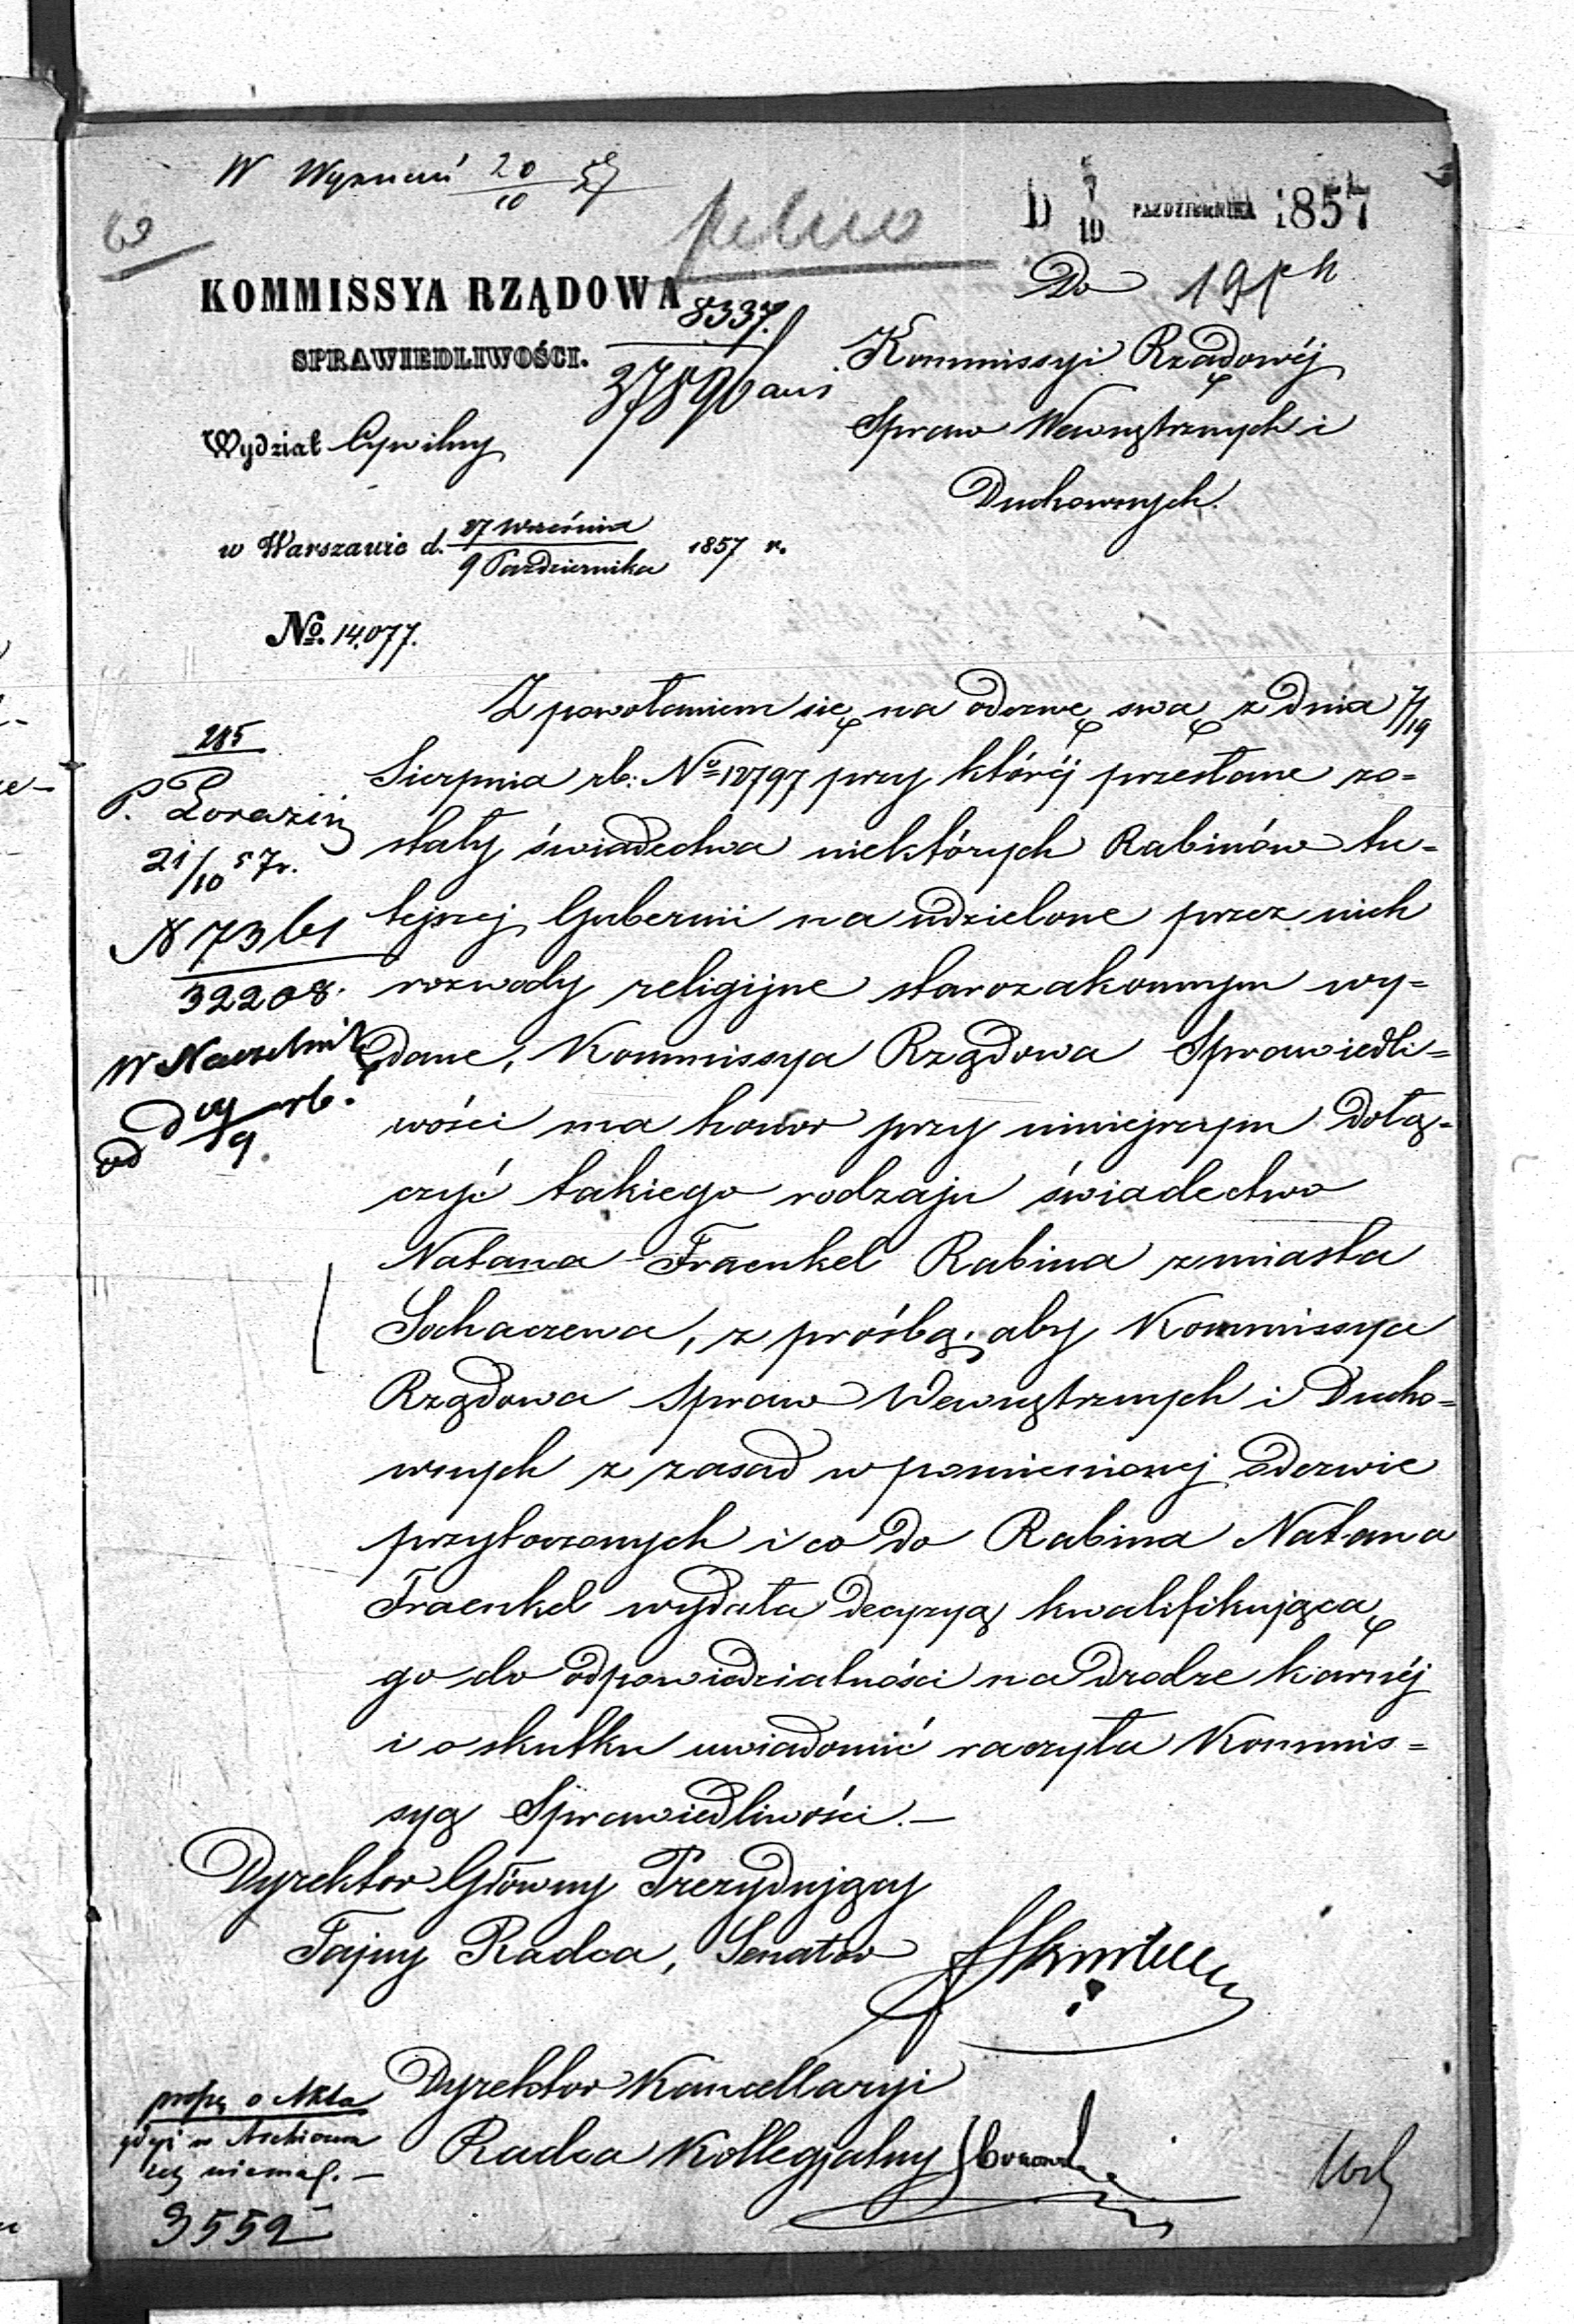 W Wyznań 20/10 57
D 7/10 PAŹDZIERNIKA 1857
pilno
KOMMISSYA RZĄDOWA
SPRAWIEDLIWOŚCI.
8337.
37896
Wydział Cywilny
w Warszawie d. 27 Września / 9 Października 1857 r.
No. 14,077.
Do
Kommissyi Rządowéj
Spraw Wewnętrznych i
Duchownych.
Z powołaniem się na odezwę swą z dnia 7/19
Sierpnia rb: No 12797 przy któréj przesłane zo=
stały świadectwa niektórych Rabinów tu=
tejszej Gubernii na udzielone przez nich
rozwody religijne starozakonnym wy=
dane, Kommissya Rządowa Sprawiedli=
wości ma honor przy niniejszym dołą=
czyć takiego rodzaju świadectwo
Natana Fraenkel Rabina z miasta
Sochaczewa, z prośbą, aby Kommissya
Rządowa Spraw Wewnętrznych i Ducho=
wnych z zasad w pomienionej odezwie
przytoczonych i co do Rabina Natana
Fraenkel wydała decyzyą kwalifikującą
go do odpowiedzialności na drodze karnéj
i o skutku uwiadomić raczyła Kommis=
syą Sprawiedliwości.—
Dyrektor Główny Prezydujący
Tajny Radca, Senator
Dyrektor Kancellaryi
Radca Kollegjalny
285
P.
21/10 57r.
N 7361
32208.
W Naczelnik
proszę o Akta
gdyż w Archiwum
ich niema.—
3552